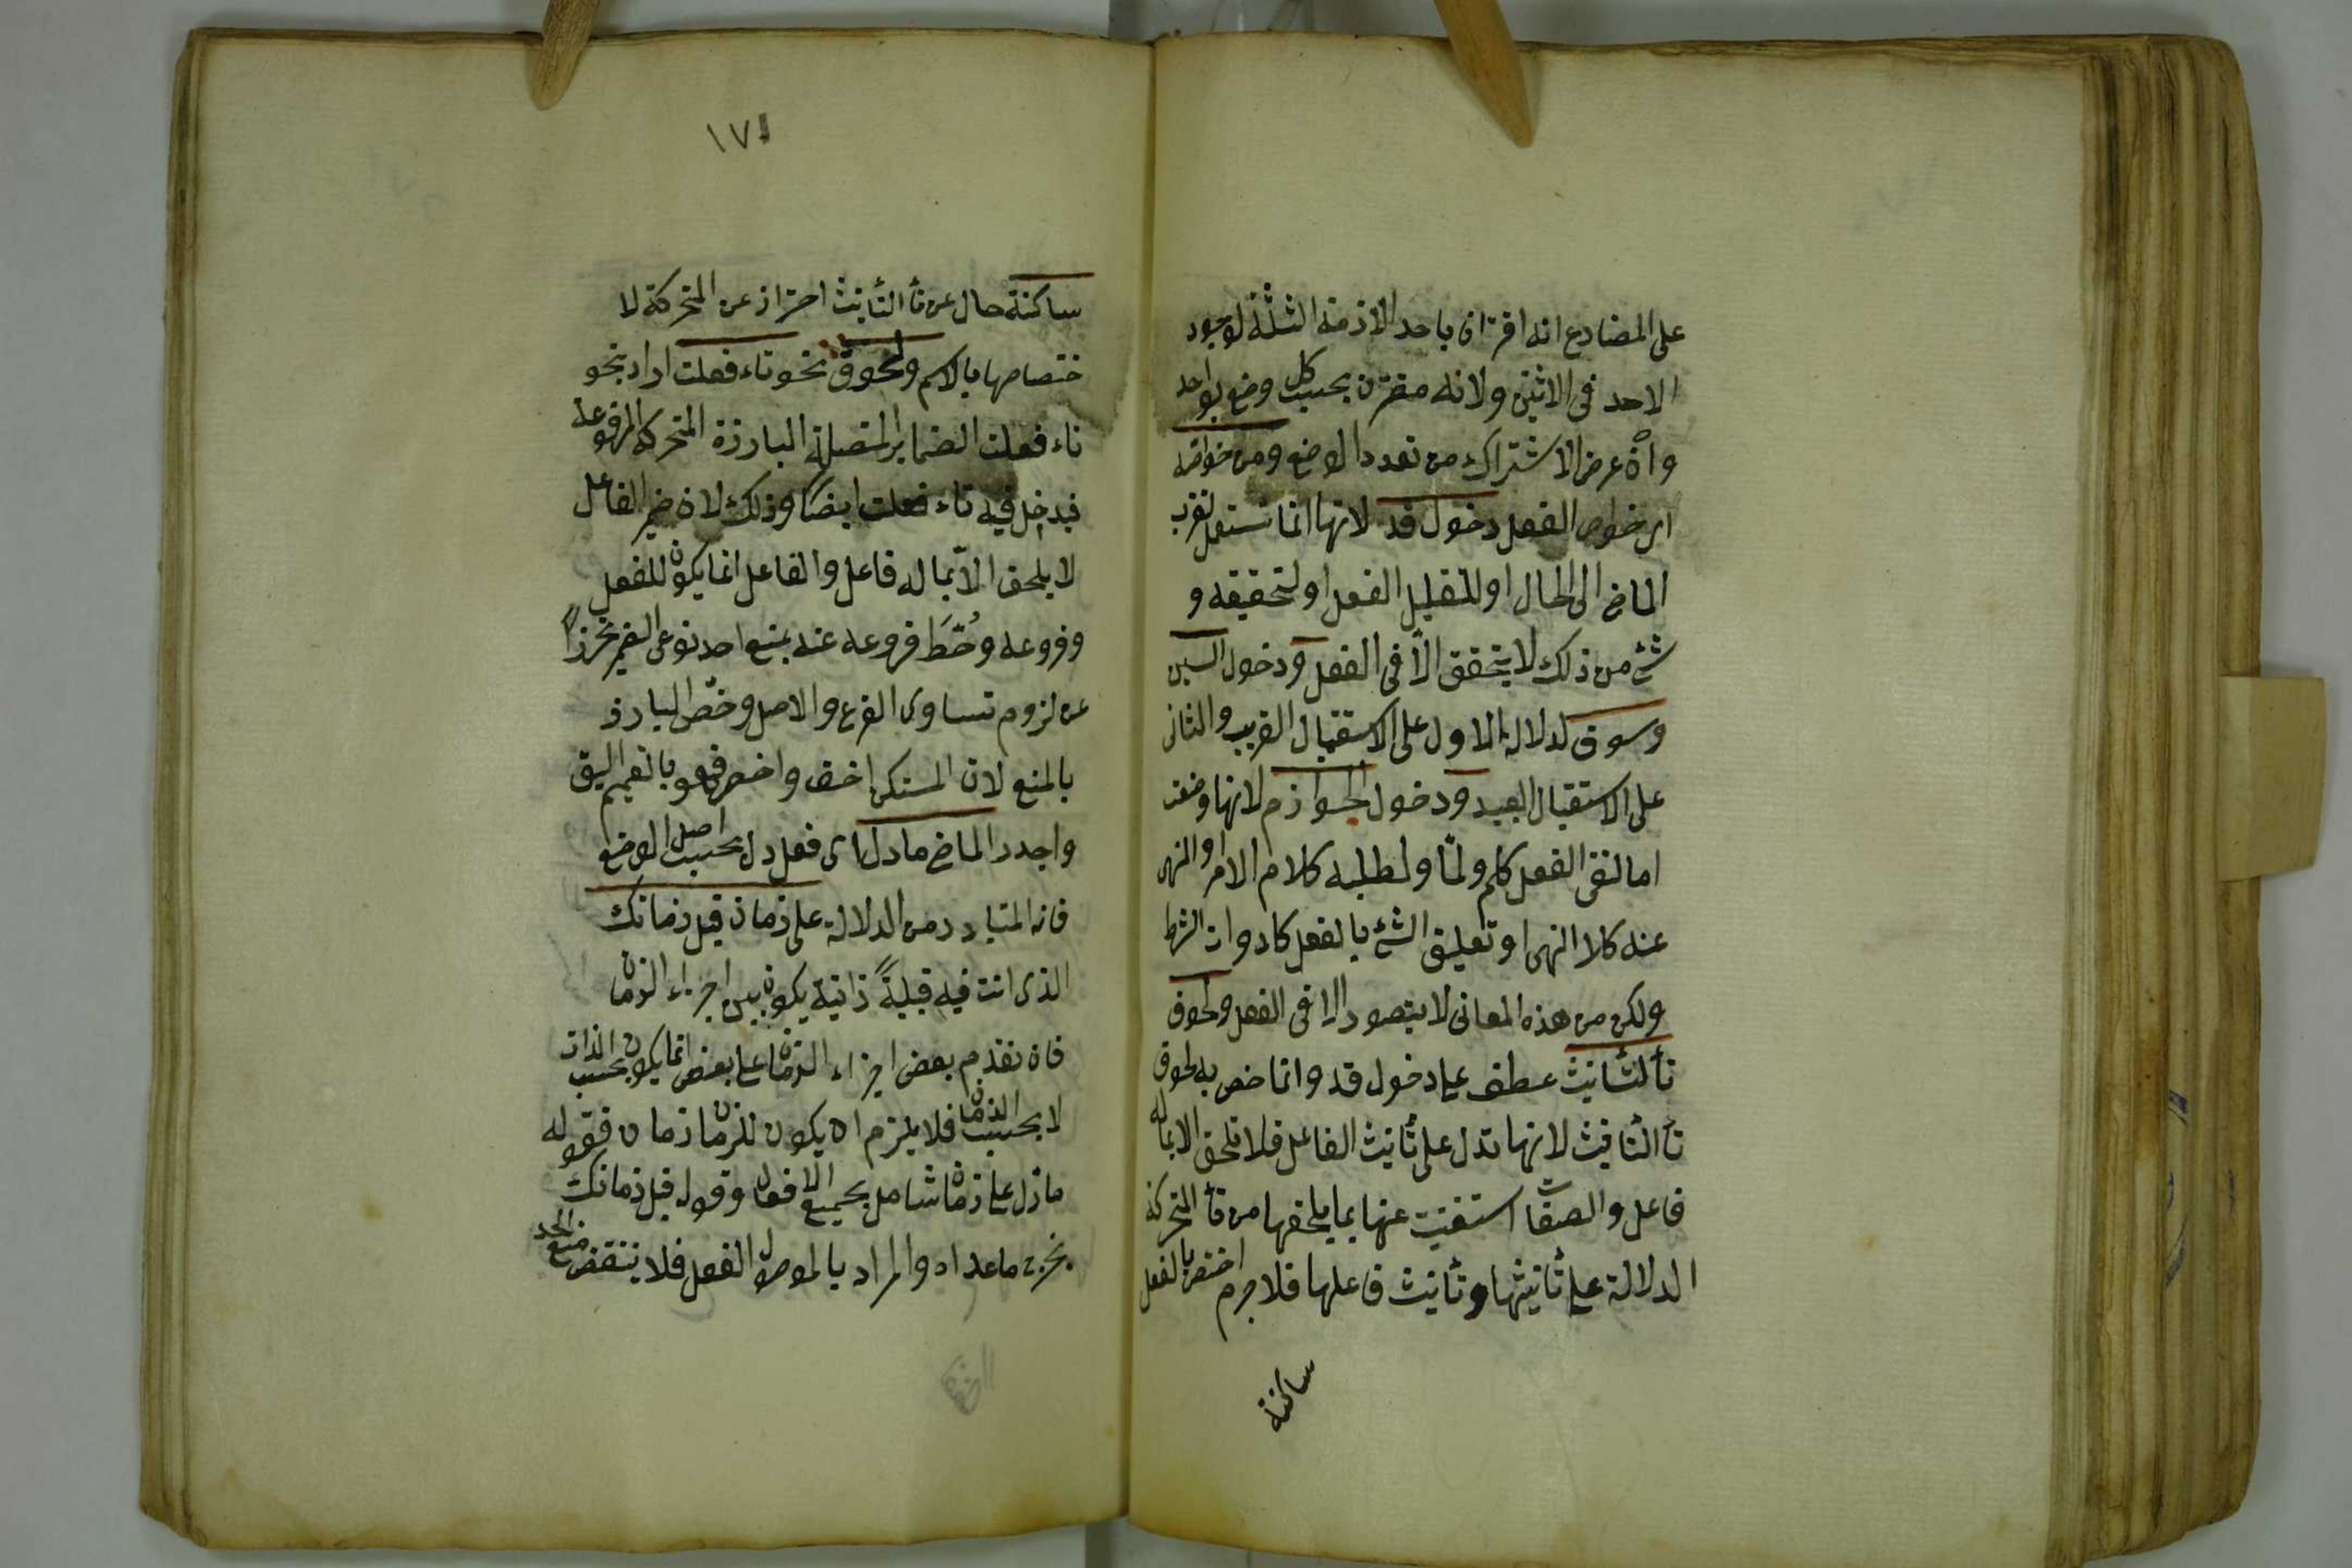 على المضارع انه اقتران باحد الازمنة الثلثة لوجود
الاحد فى الاثنين ولانه مقترن بحسب كل وضع بواحد
وان عرض الاشتراك من تعدد الوضع ومن خواصه
اى خواص الفعل دخول قد لانها انما تستعمل لتقرب
الماضى الى الحال او لتقليل الفعل او لتحقيقه و
شئ من ذلك لا يتحقق الا فى الفعل ودخول السين
وسوف لدلالة الاول على الاستقبال القريب والثانى
على الاستقبال البعيد ودخول الجوازم لانها وضعت
اما لنفى الفعل كلم ولمّا ولطلبه كلام الامر او النهى
عنه كلا النهى او تعليق الشئ بالفعل كادوات الشرط
ولكن من هذه المعانى لا يتصور الا فى الفعل ولحوق
تأ لتأنيث عطف على دخول قد وانما خص به لحوق
تأ التأنيث لانها تدل على تأنيث الفاعل فلا تلحق الا بماله
فاعل والصفات استغنيت عنها بما يلحقها من تأ المتحركة
الدلالة على تأنيثها وتأنيث فاعلها فلا جرم اختص بالفعل
ساكنة
١٧١
ساكنة حال عن تأ التأنيث احتراز عن المتحركة لا
ختصاصها بالاسم ولحوق نحو تاء فعلت اراد بنحو
تاء فعلت الضماير المتصلة البارزة المتحركة المرفوعة
فيدخل فيه تاء فعلت ايضا وذلك لان ضمير الفاعل
لا يلحق الاّ بما له فاعل والفاعل انما يكون للفعل
وفروعه وحُطَّ فروعه عنه بمنع احد نوعى الضمير تحرزاً
عن لزوم تساوى الفرع والاصل وخصّ البارز
بالمنع لان المستكن اخف واخصر فهو بالتعميم اليق
واجدر الماضى ما دل اى فعل دل بحسب اصل الوضع
فانه المتبادر من الدلالة على زمان قبل زمانك
الذى انت فيه قبليةً ذاتية يكون بين اجزاء الزمان
فان تقدم بعض اجزاء الزمان على بعض انما يكون بحسب الذات
لا بحسب الزمان فلا يلزم ان يكون للزمان زمان فقوله
ما دل على زمان شامل بجميع الافعال وقوله قبل زمانك
يخرج ما عداه والمراد بالموصول الفعل فلا ينتقض منع الحد